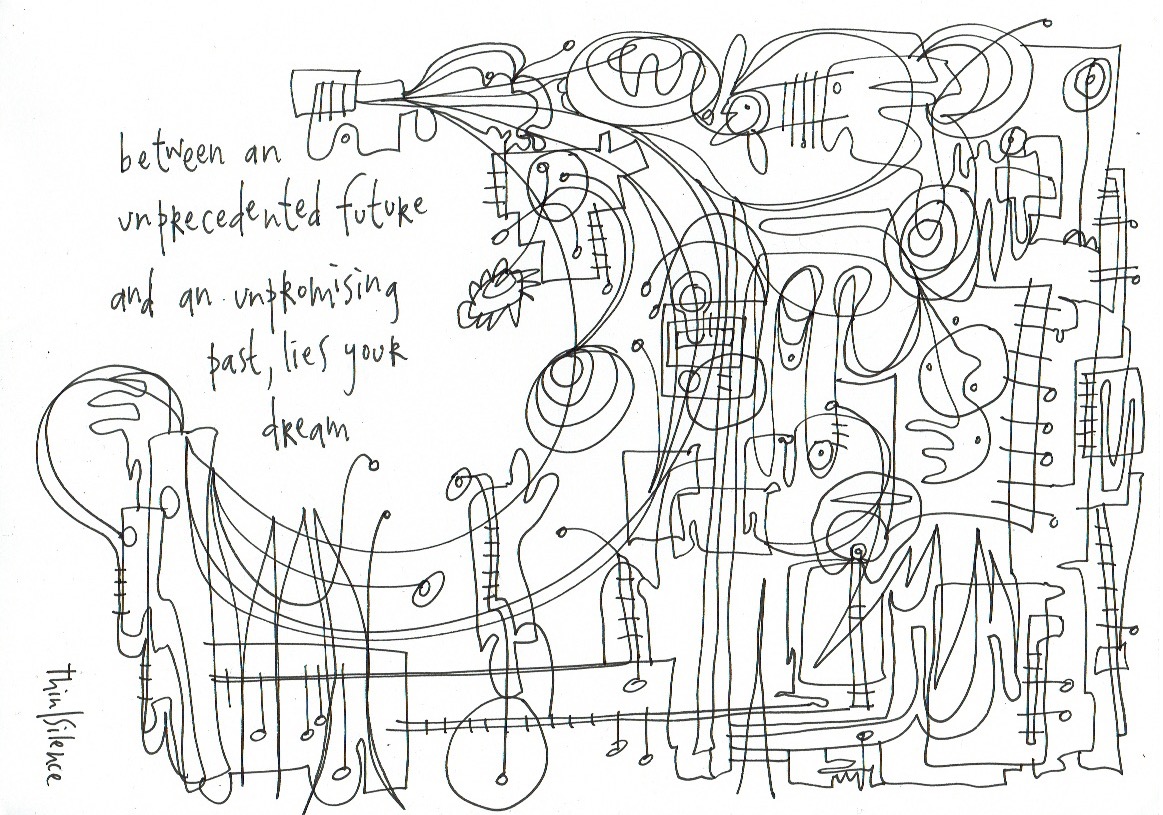 between an
unprecedented future
and an unpromising
past, lies your
dream
thin/silence